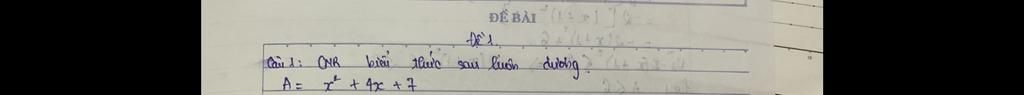 ĐỀ BÀI
Đề 1
Câu 1: CMR biểu thức sau luôn dương:
A = x² + 4x + 7